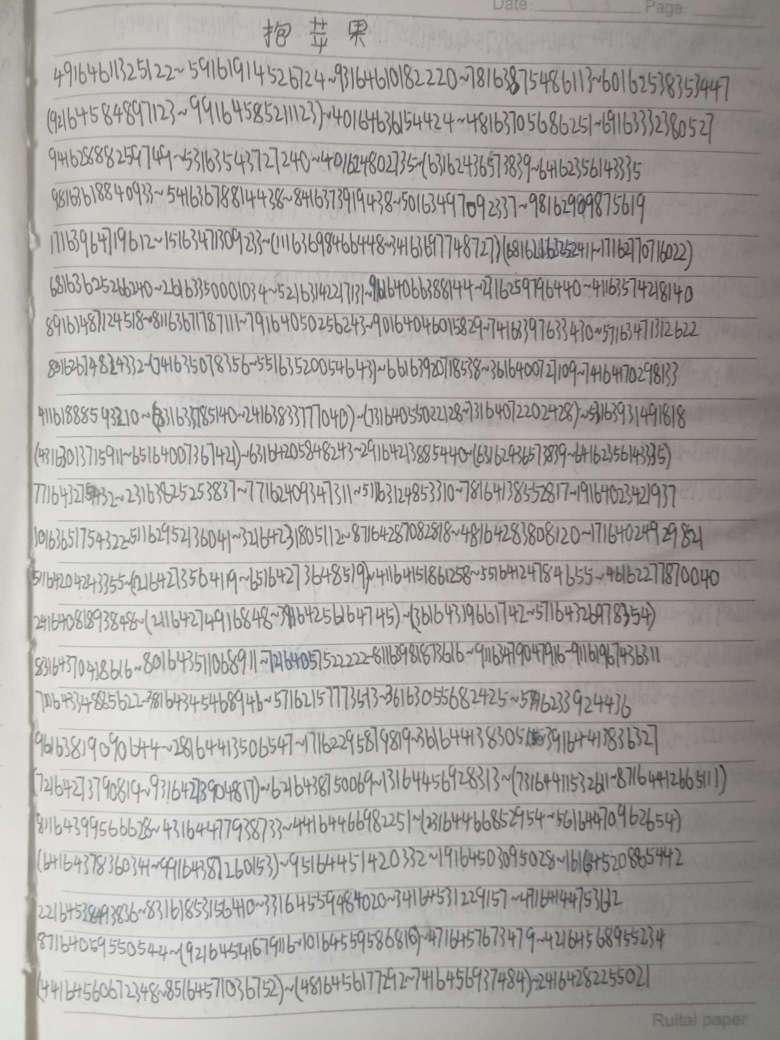 Date Page
抱苹果
4916461132​5122~5916191452​6724~9316461018​2220~7816387548​6113~6016253835​3447
(9216458489​7123~9916458521​1123)~4016463615​4424~4816370568​6251~6911633323​80527
9441628882597499~5316354372​7240~401624802735~(63162436573839~64162356143335
9816361884​0933~5416367881​4438~8416373919​438~5016349709​2337~9816290987​5619
1711639647​19612~1516347130​9233~(1116369846​6448~3416369774​8727)(68162116325​2411~1716277071​6022)
6816362526​6240~2616335000​1034~5216314221​7131~9616406638​8144~2716259796​440~4116357421​8140
8916148712​4518~8116367178​7111~7916405025​6243~9016404601​5829~7416397633​430~5716347131​2622
8016267482​4332~(741635078356~5516352005​4643)~6616392071​8538~3616400727​109~7416417029​8133
4116188854​93210~(831633785140~2416383377​7040)~(7316405502​2128~7316407220​2428)~5816393149​1818
(4316301371​5911~6516400736​7421)~6316420584​8243~2916421388​5440~(6316243657​3839~6416235614​3335)
7716432759432~2316382525​3837~7716240934​7311~5116312485​3310~7816413855​2817~1916402342​1937
3016365175​4322~5116295213​6041~3216423180​5112~8716428708​2818~4816428380​8120~1716402492​9821
5116420424​3355~(0216421356​4119~6516427364​8519)~4116415186​1258~5516412478​4655~4616227787​0040
2416408189​3848~(2116427491​6848~3916425616​4745)~(3616431966​1742~5716432697​8354)
8316437041​8616~8016435110​68911~7216405752​2222~8116398187​3616~9116347904​7916~9116196743​6311
7016433488​25622~3816434546​8946~5716215777​3513~3616305568​2425~5716233924436
9616381909​0644~2816441350​6547~1716229587​9819~3616441383​0505~3916441383​6327
(7216427379​0819~9316427390​4817)~6216438750​069~1316445692​8313~(7316441153​2611~8716441266​5111)
8116439956​6628~4316447793​8733~4416446698​2251~(2316446685​2954~5616447096​2654)
(6416437836​0341~9916438726​0153)~9516445142​0332~1916450309​5028~1616452086​5442
2216453849​3836~8316185315​6410~3316455948​4020~3416453122​9157~4716414475​3612
8716405955​0544~(9216454167​9116~1016455958​6816)~4716457673​479~4216456895​5234
(4416456067​2348~8516457103​6752)~(4816456177​292~7416456937​484)~2416428225​5021
Ruitai paper